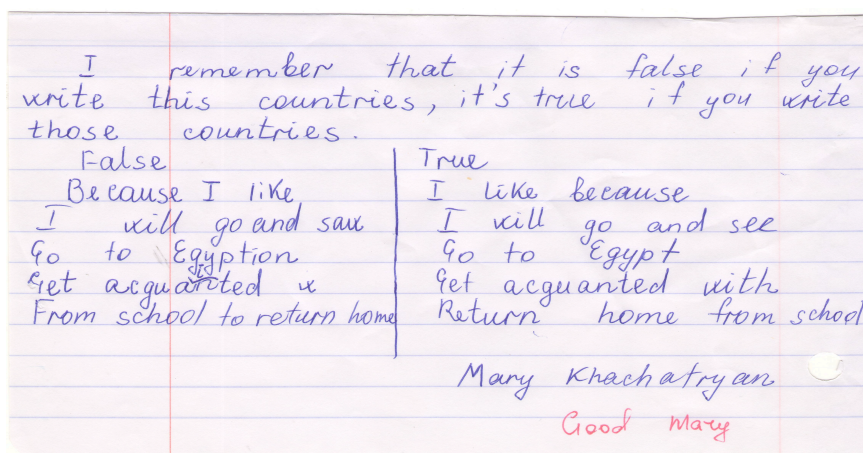 I remember that it is false if you
write this countries, it's true if you write
those countries.
False
Because I like
I will go and saw
Go to Egyption
Get acquainted w
From school to return home
True
I like because
I will go and see
Go to Egypt
Get acquanted with
Return home from school
Mary Khachatryan
Good Mary